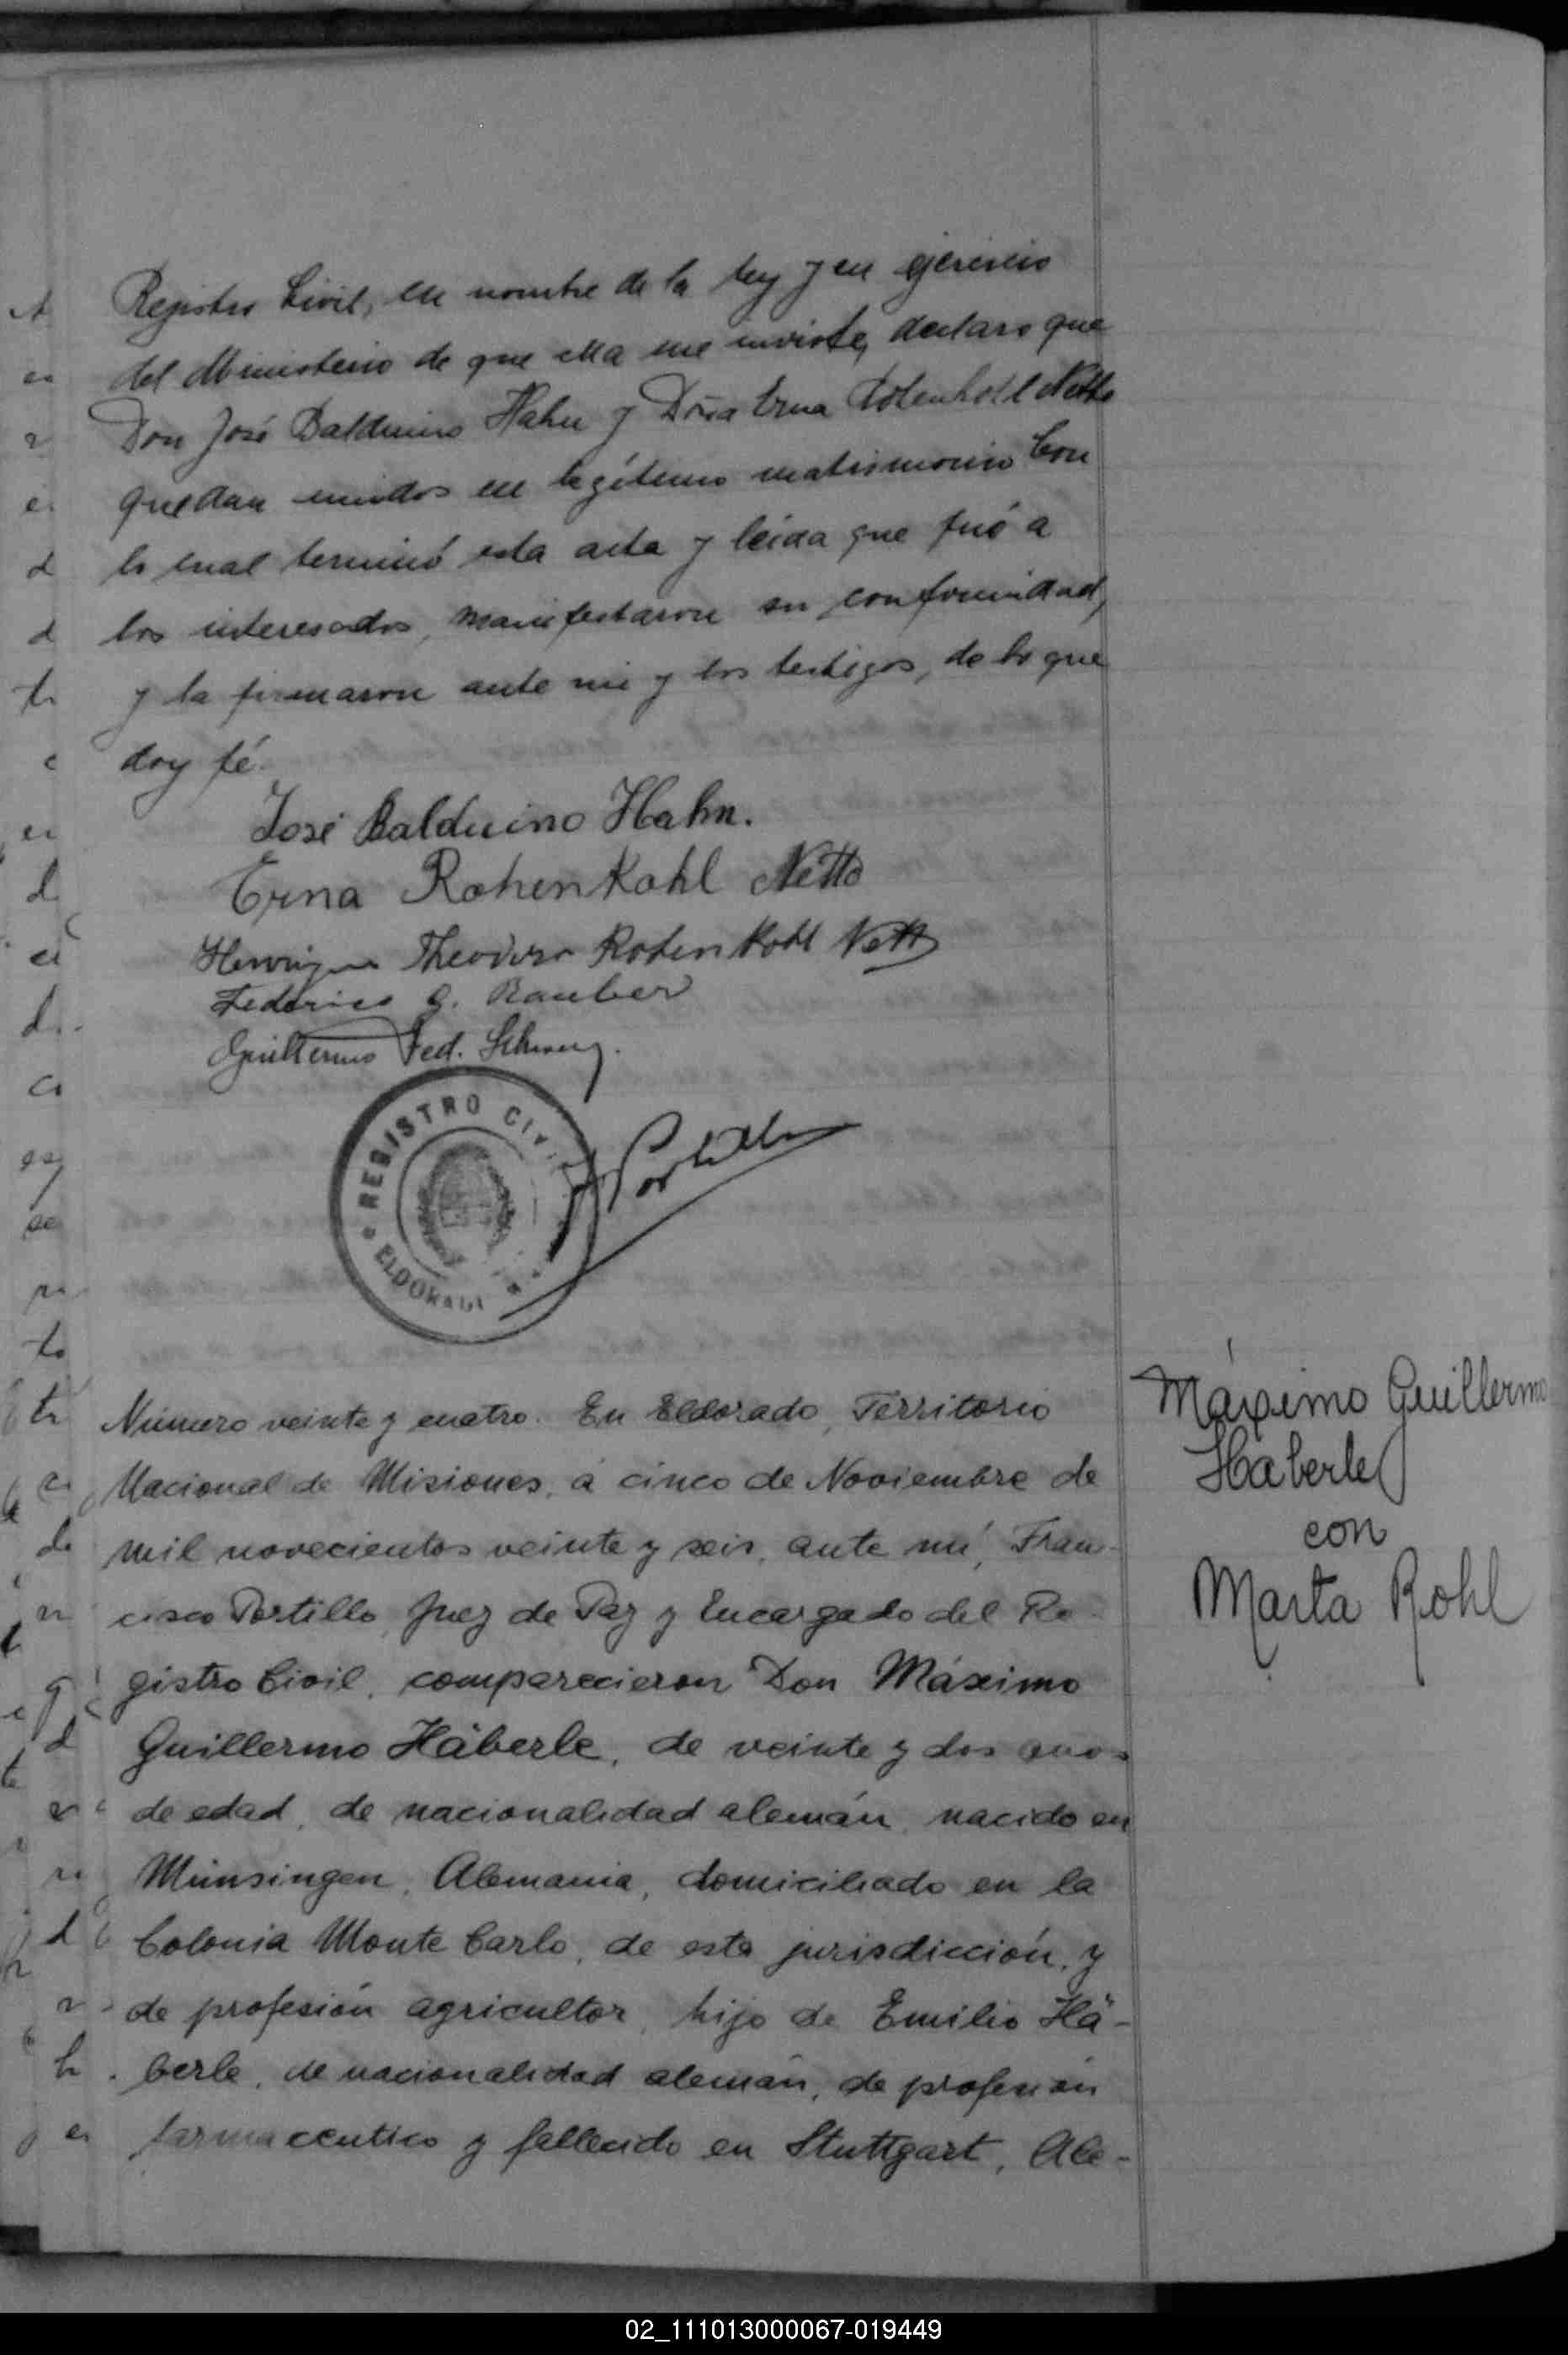 Registro Civil, en nombre de la ley y en ejercicio
del Ministerio de que ella me inviste, declaro que
Don José Balduino Hahn y Doña Erna Rotenkohl Netto
quedan unidos en legítimo matrimonio Con
lo cual terminó esta acta y leida que fué a
los interesados, manifestaron su conformidad,
y la firmaron ante mi y los testigos, de lo que
doy fé.
José Balduino Hahn.
Erna Rohenkohl Netto
Henrique Theodoro Rohenkohl Netto
Federico G. Rauber
Guillermo Fed.
REGISTRO CIVIL
ELDORADO
Portillo
Número veinte y cuatro. En Eldorado, Territorio
Nacional de Misiones, á cinco de Noviembre de
mil novecientos veinte y seis, ante mí, Fran-
cisco Portillo, Juez de Paz y Encargado del Re-
gistro Civil, comparecieron Don Máximo
Guillermo Häberle, de veinte y dos anos
de edad, de nacionalidad alemán, nacido en
Münsingen, Alemania, domiciliado en la
Colonia Monte Carlo, de esta jurisdicción, y
de profesión agricultor, hijo de Emilio Hä-
berle, de nacionalidad alemán, de profesión
farmaceutico y fallecido en Stuttgart, Ale-
Máximo Guillermo
Haberle
con
Marta Rohl
02_111013000067-019449